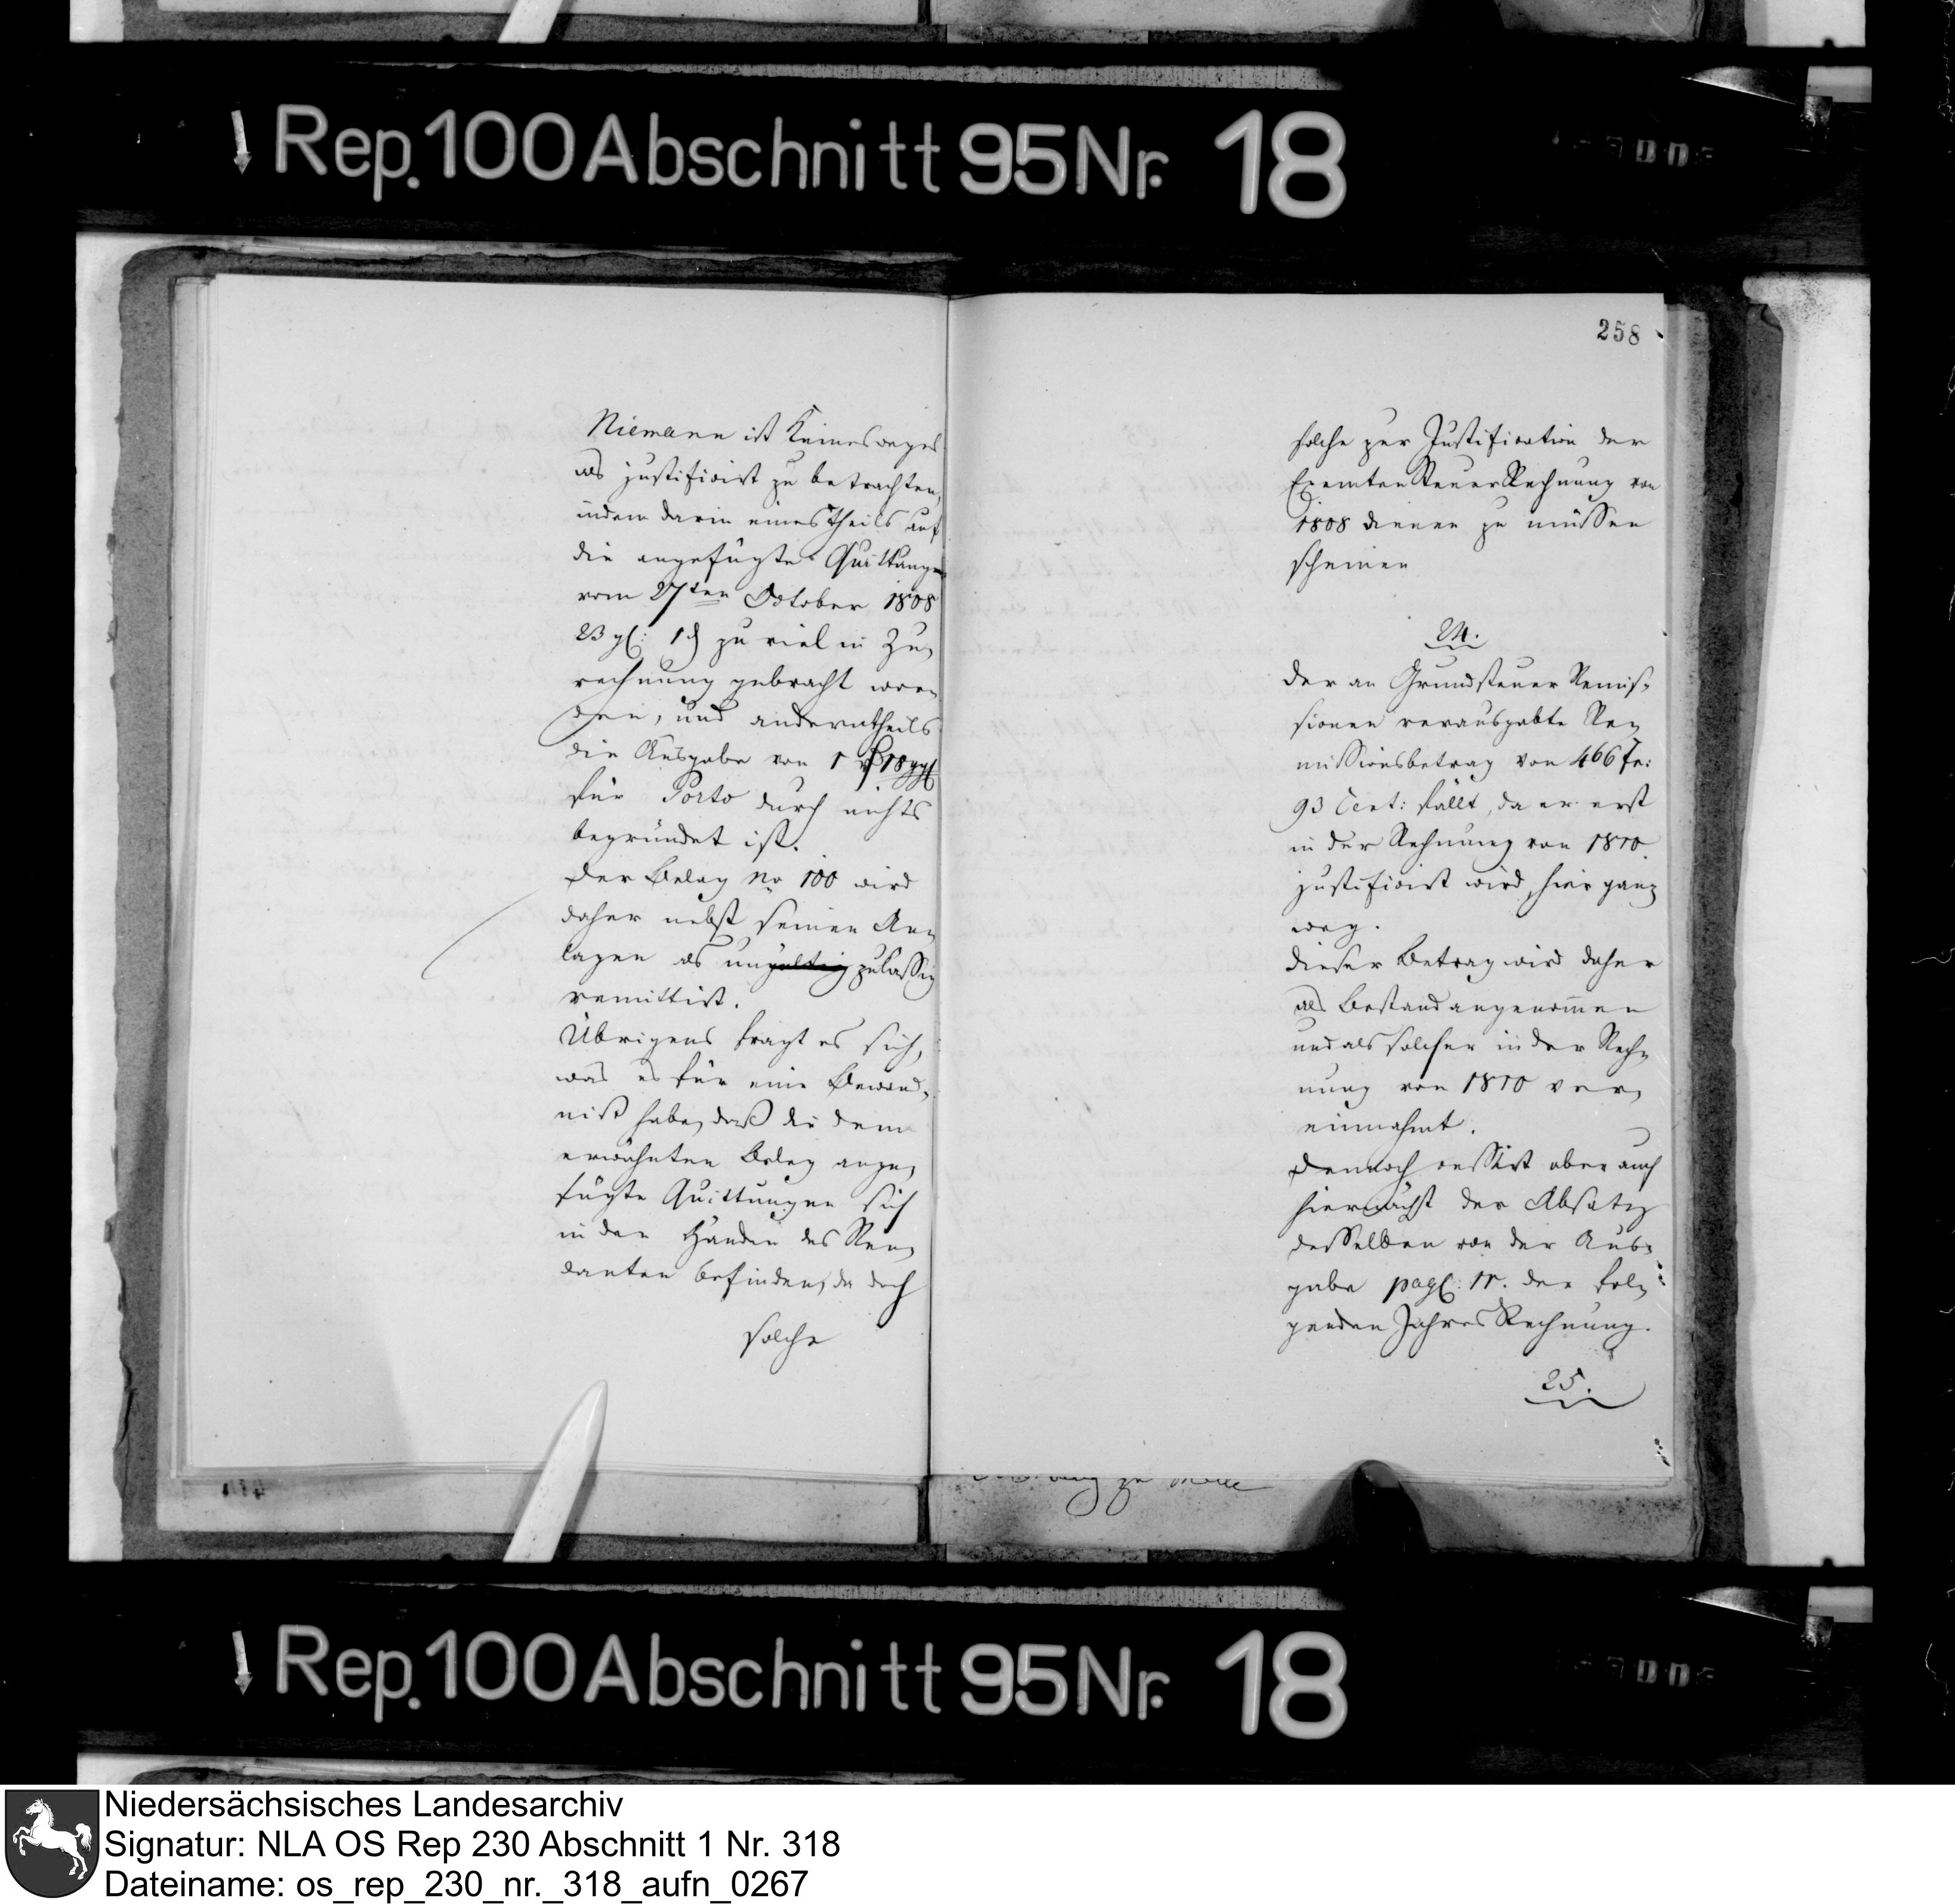 Rep. 100 Abschnitt 95 Nr. 18
Niemann ist keinesweges
als justificirt zu betrachten,
indem darin eines Theils auf
die angefügte Quittungen
vom 27ten October 1808
23 gl: 1 d zu viel in Zu,
rechnung gebracht wor,
den, und anderntheils
die Ausgabe von 1 18 ggl
für Porto durch nichts
begründet ist.
Der Belag No 100 wird
daher nebst seinen An,
lagen als ungültig zulässig
remittirt.
Übrigens fragt es sich,
was es für eine Bewand,
niß habe, daß die dem
erwähnten Belag ange,
fügte Quittungen sich
in den Händen des Ren,
danten befinden, da doch
solche
258
solche zur Justification der
Exemten Steuer Rechnung von
1808 dienen zu müssen
scheinen
24.
Der an Grundsteuer Remis,
sionen verausgabte Re,
missionsbetrag von 466 fr:
93 Cent: fällt, da er erst
in der Rechnung von 1810
justificirt wird, hier ganz
weg.
Dieser Betrag wird daher
als Bestand angenommen
und als solcher in der Rech,
nung von 1810 ver,
einnahmt.
Dennoch cessirt aber auch
hiernächst der Absatz
desselben von der Aus,
gabe pag: 11. der fol,
genden Jahres Rechnung.
25.
zu Melle
Rep. 100 Abschnitt 95 Nr. 18
Niedersächsisches Landesarchiv
Signatur: NLA OS Rep 230 Abschnitt 1 Nr. 318
Dateiname: os_rep_230_nr._318_aufn_0267